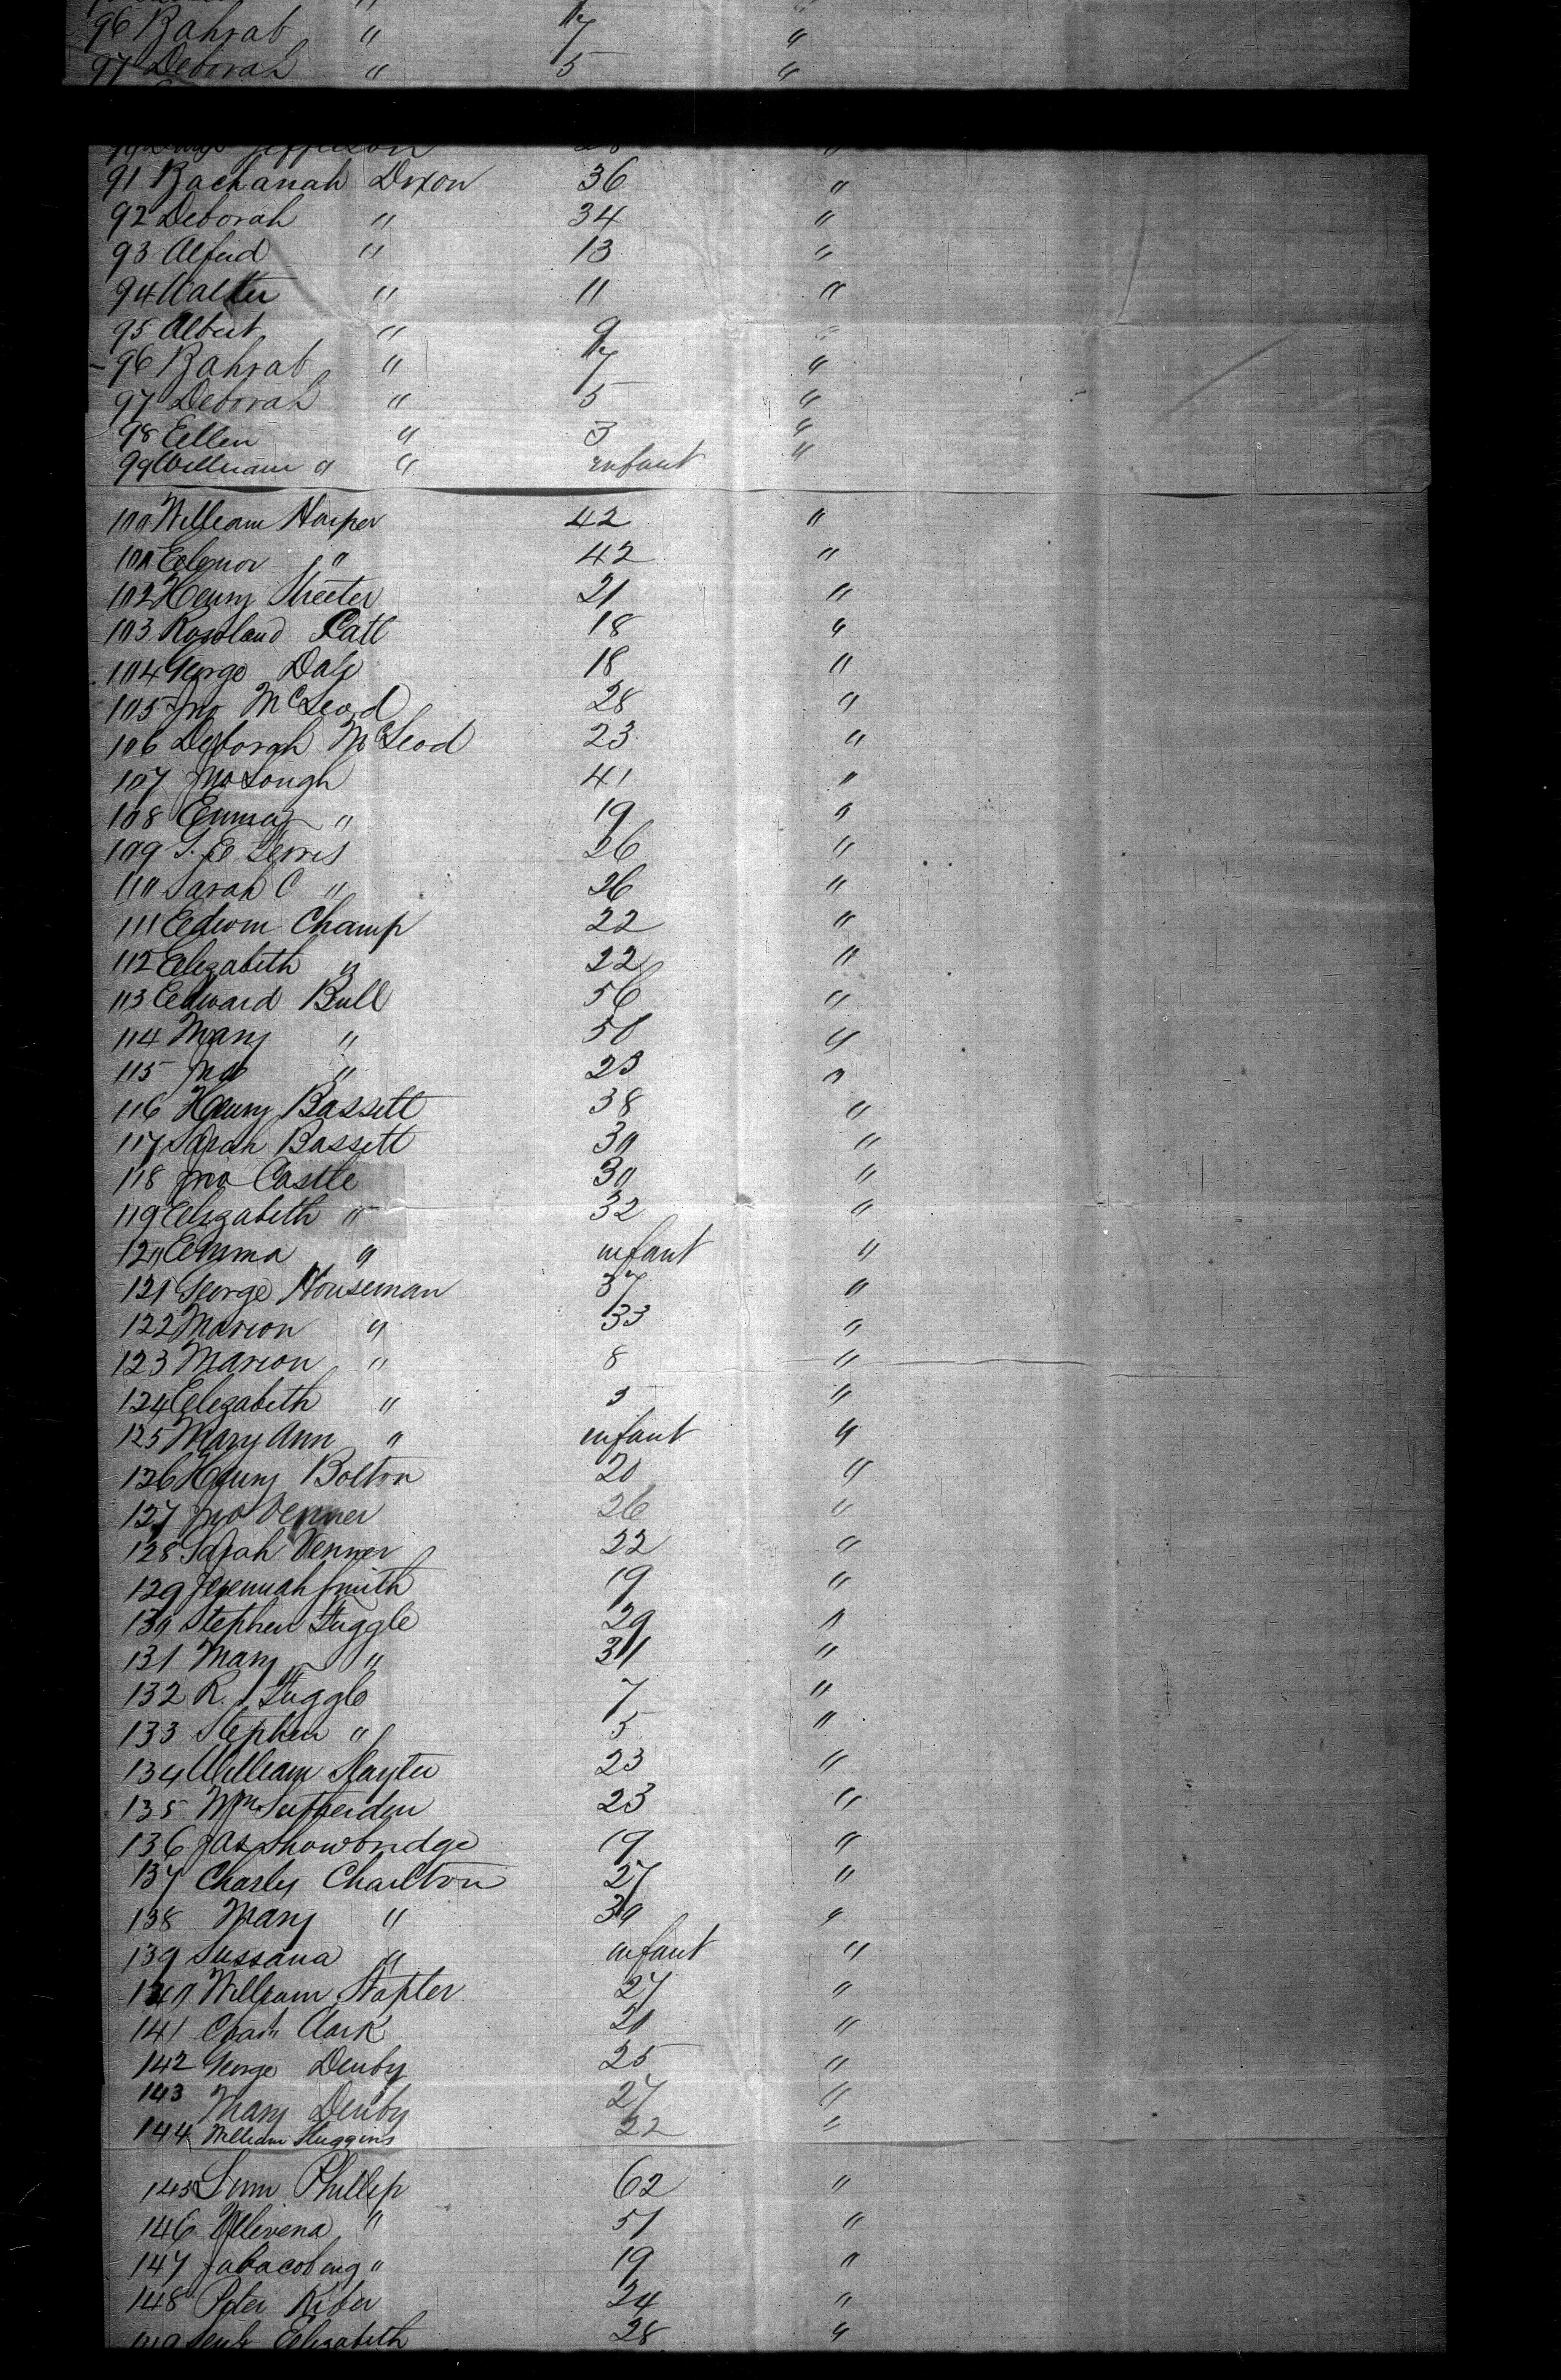 96 Rahrab " 7 "
97 Deborah " 5 "
Jefferson 28 "
91 Zachariah Dixon 36 "
92 Deborah " 34 "
93 Alfred " 13 "
94 Walter " 11 "
95 Albert " 9 "
96 Rahrab " 7 "
97 Deborah " 5 "
98 Ellen " 3 "
99 William " " infant "
100 William Harper 42 "
101 Elenor " 42 "
102 Henry Streeter 21 "
103 Rossland 18 "
104 George Dale 18 "
105 Jno McLeod 28 "
106 Deborah McLeod 23 "
107 Jno Lough 41 "
108 Emma " 19 "
109 Lewis 26 "
110 Sarah C " 26 "
111 Edwin Champ 22 "
112 Elizabeth " 22 "
113 Edward Bull 56 "
114 Mary " 50 "
115 Jno " 23 "
116 Henry Bassett 38 "
117 Sarah Bassett 30 "
118 Jno Castle 30 "
119 Elizabeth " 32 "
120 Emma " infant "
121 George Houseman 37 "
122 Marion " 33 "
123 Marion " 8 "
124 Elizabeth " 3 "
125 Mary Ann " infant "
126 Henry Bolton 20 "
127 Jno Venner 26 "
128 Sarah Venner 22 "
129 Jeremiah Smith 19 "
130 Stephen Fuggle 29 "
131 Mary " 31 "
132 R. J Fuggle 7 "
133 Stephen " 5 "
134 William Slayter 23 "
135 Wm 23 "
136 Jas Showbridge 19 "
137 Charles Charlton 27 "
138 Mary " 30 "
139 Sussana " infant "
140 William Stapler 27 "
141 Chas Clark 21 "
142 George Denby 25 "
143 Mary Denby 27 "
144 William Huggins 22 "
145 Phillip 62 "
146 " 51 "
147 " 19 "
148 Peter 24 "
149 Elizabeth 28 "